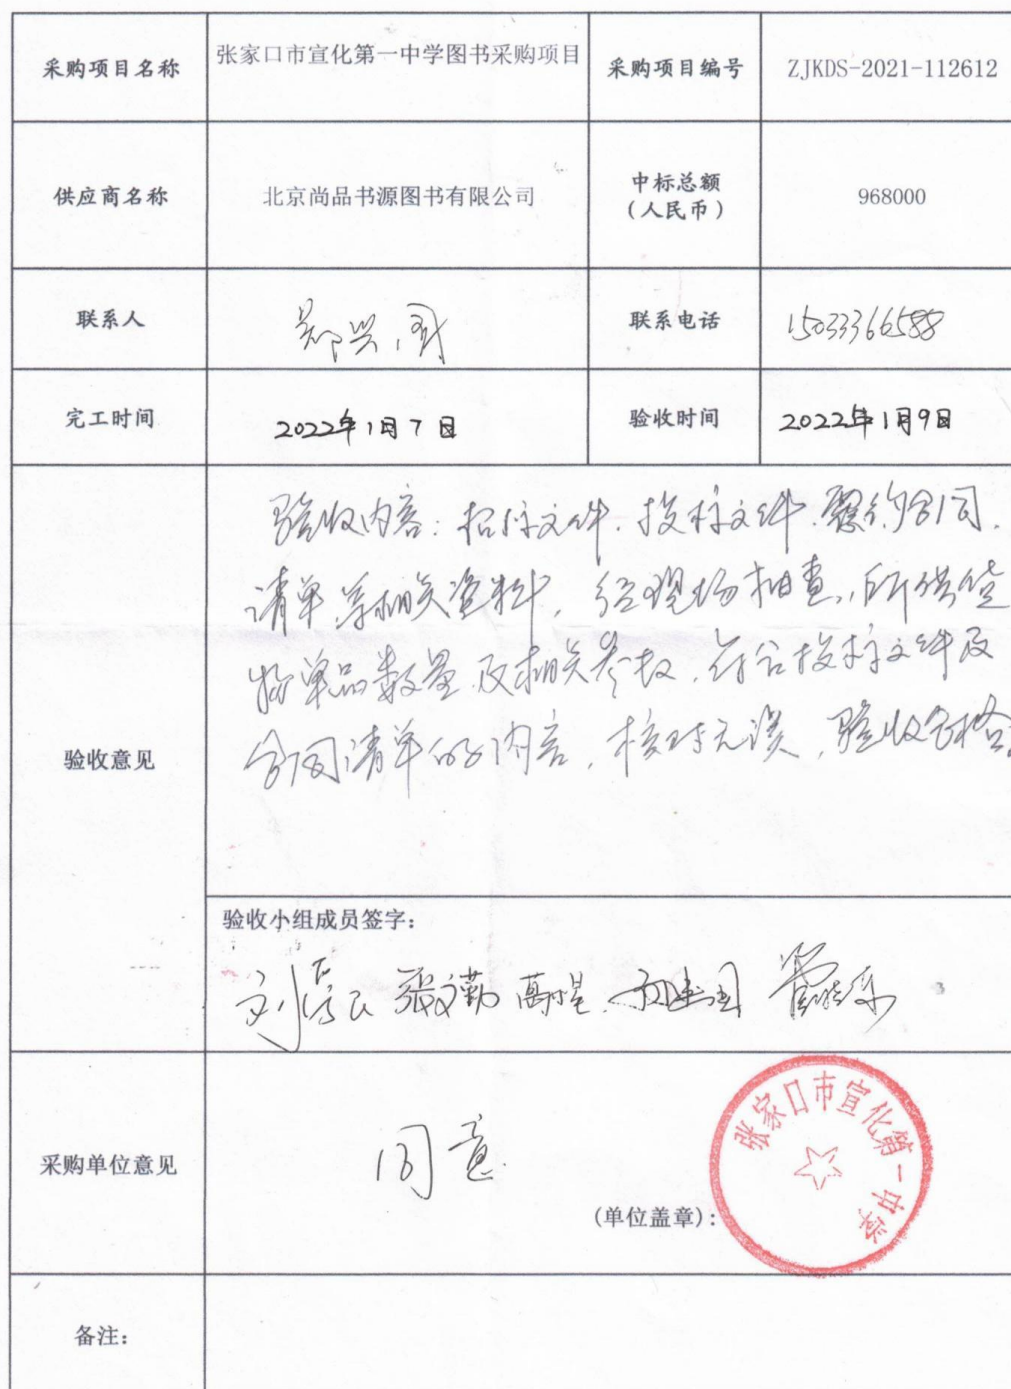 采购项目名称 张家口市宣化第一中学图书采购项目 采购项目编号 ZJKDS-2021-112612
供应商名称 北京尚品书源图书有限公司 中标总额
(人民币) 968000
联系人 郑兴国 联系电话 15033366588
完工时间 2022年1月7日 验收时间 2022年1月9日
验收意见
验收内容：招标文件、投标文件、合同、
清单等相关资料，经现场抽查，所供货
物单品数量及相关参数，符合投标文件及
合同清单的内容，核对无误，验收合格。
验收小组成员签字：
张文勤
采购单位意见 同意
(单位盖章)：
张家口市宣化第一中学
备注：